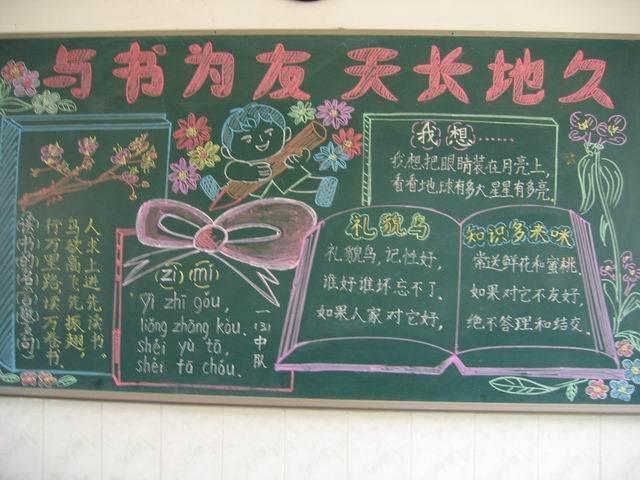 与书为友 天长地久
我想……
我想把眼睛装在月亮上,
看看地球有多大星星有多亮.
人求上进先读书.
鸟欲高飞先振翅,
行万里路,读万卷书.
读书的名言警句:
(zì)(mí)
yì zhī gǒu,
liǎng zhāng kǒu.
shéi yù tā,
shéi tā chóu.
一(3)中队
礼貌鸟
礼貌鸟,记性好,
谁好谁坏忘不了.
如果人家对它好,
知识多来咪
常送鲜花和蜜桃.
如果对它不友好,
绝不答理和结交.